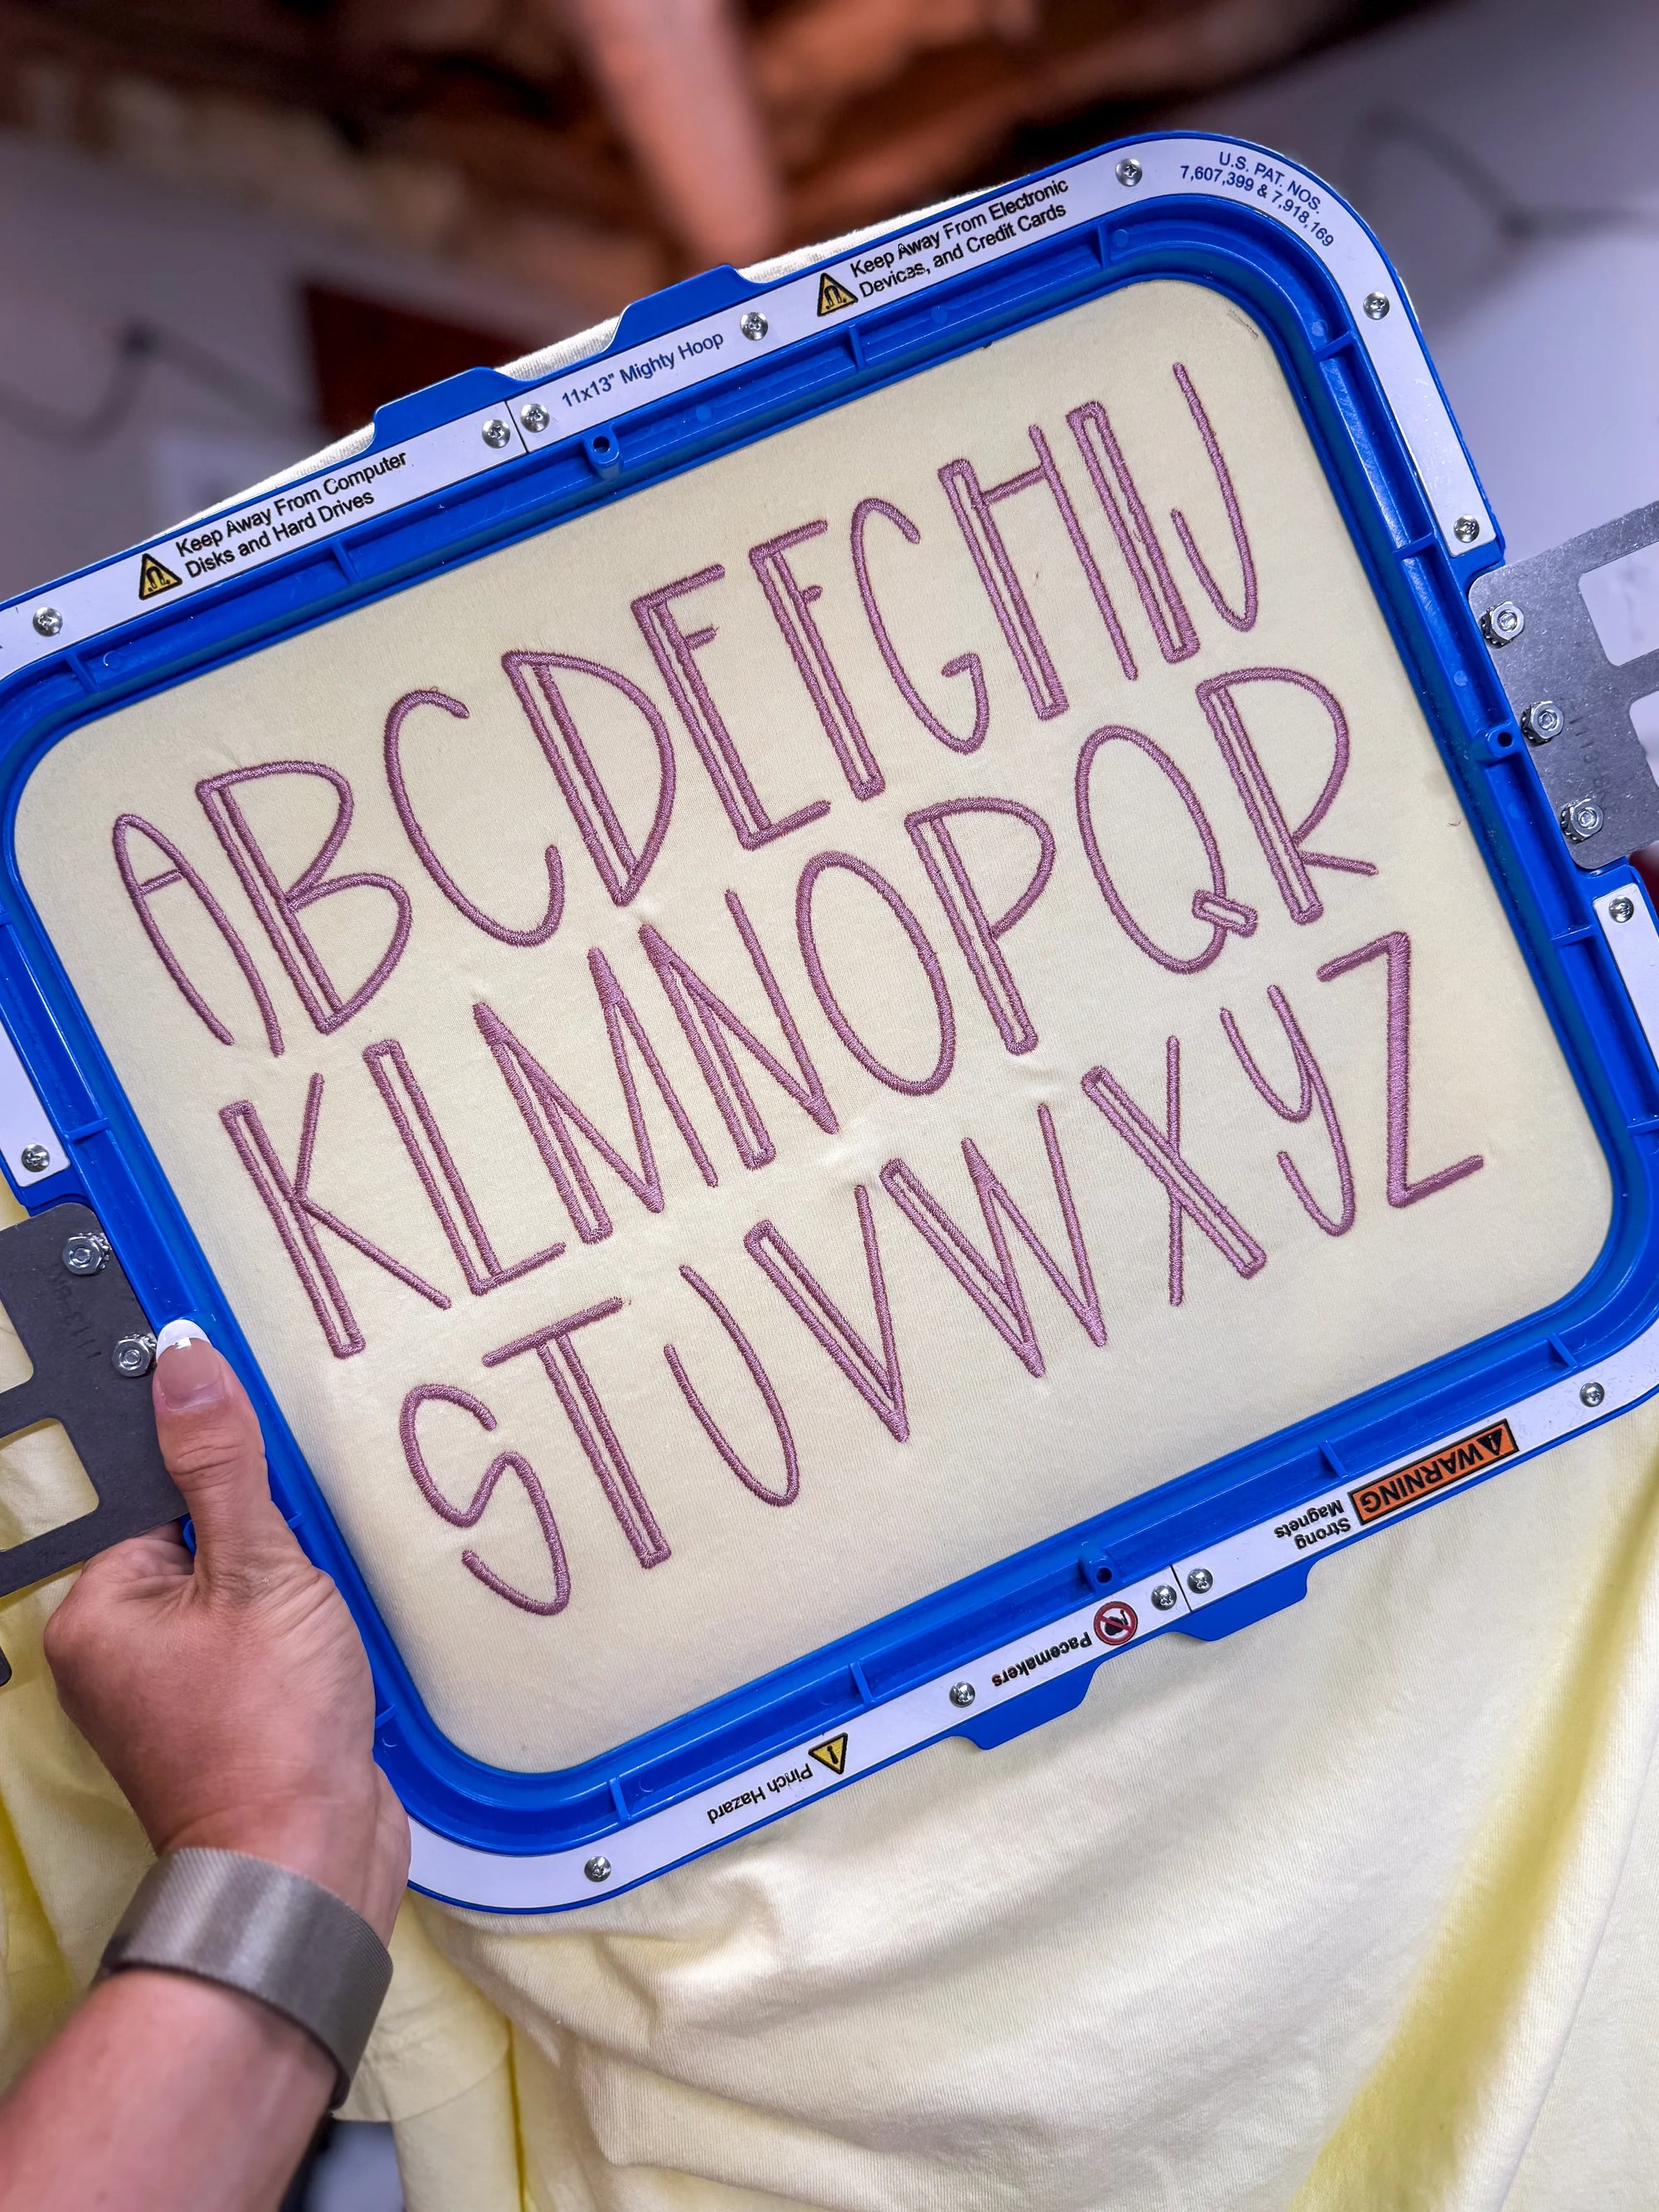 U.S. PAT. NOS.
7,607,399 & 7,918,169
Keep Away From Electronic
Devices, and Credit Cards
11x13" Mighty Hoop
Keep Away From Computer
Disks and Hard Drives
ABCDEFGHIJ
KLMNOPQR
STUVWXYZ
WARNING
Strong
Magnets
Pacemakers
Pinch Hazard